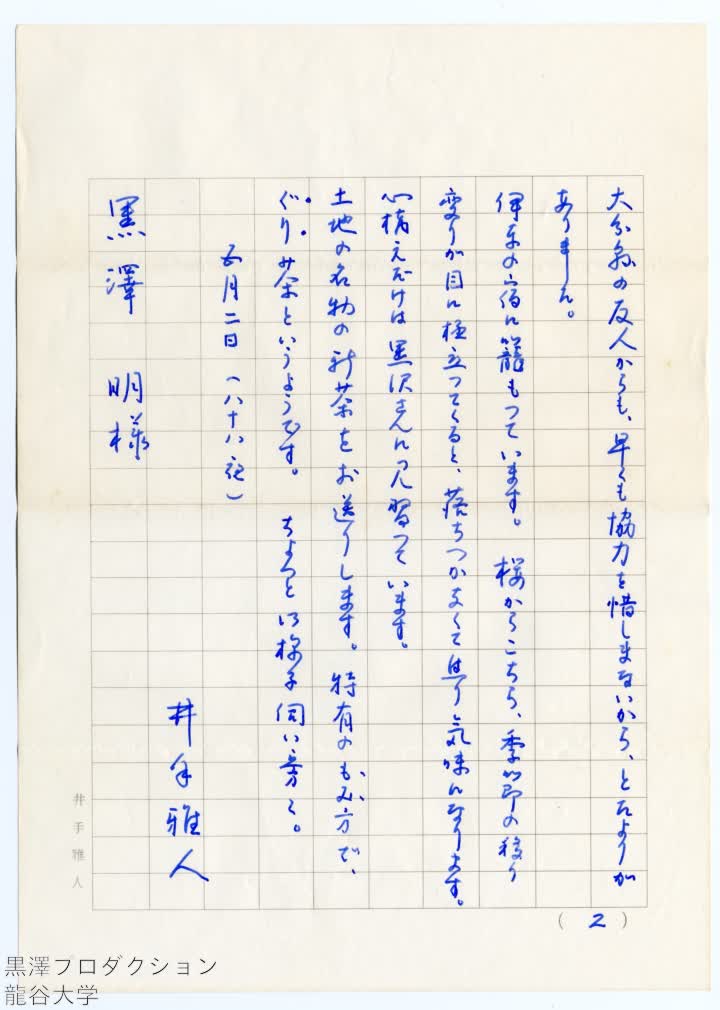 大分県の友人からも、早くも協力を惜しまないから、とたよりが
ありました。
伊東の宿に籠もつています。 桜からこちら、季節の移り
変りが目に極立つてくると、落ちつかなくて焦り気味になります。
心構えだけは黒沢さんに見習つています。
土地の名物の新茶をお送りします。特有のもみ方で、
ぐり茶というようです。 ちよつと御様子伺い旁々。
五月二日(八十八夜)
井手雅人
黒澤 明様
井手雅人
(2)
黒澤プロダクション
龍谷大学